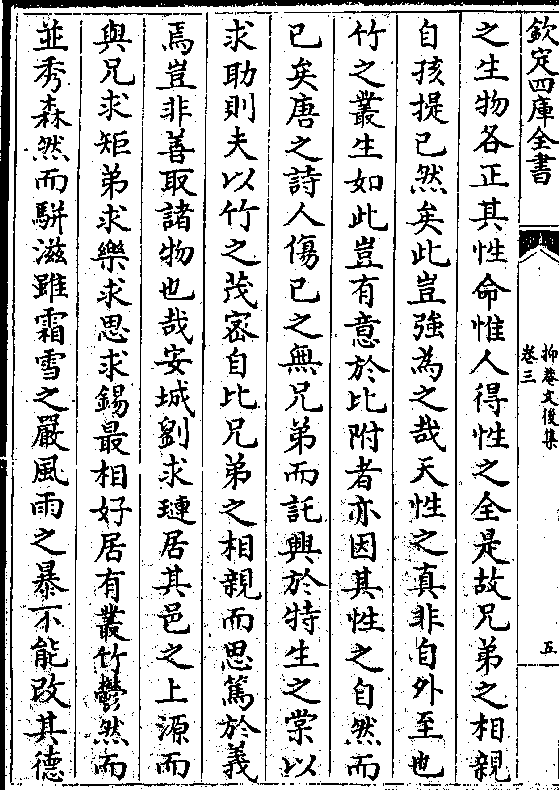 欽定四庫全書
抑菴文後集
卷三
五
之生物各正其性命惟人得性之全是故兄弟之相親
自孩提已然矣此豈強為之哉天性之真非自外至也
竹之叢生如此豈有意於比附者亦因其性之自然而
已矣唐之詩人傷已之無兄弟而託興於特生之棠以
求助則夫以竹之茂宻自比兄弟之相親而思篤於義
焉豈非善取諸物也哉安城劉求璉居其邑之上源而
與兄求矩弟求樂求思求錫最相好居有叢竹鬱然而
並秀森然而駢滋雖霜雪之嚴風雨之暴不能改其德